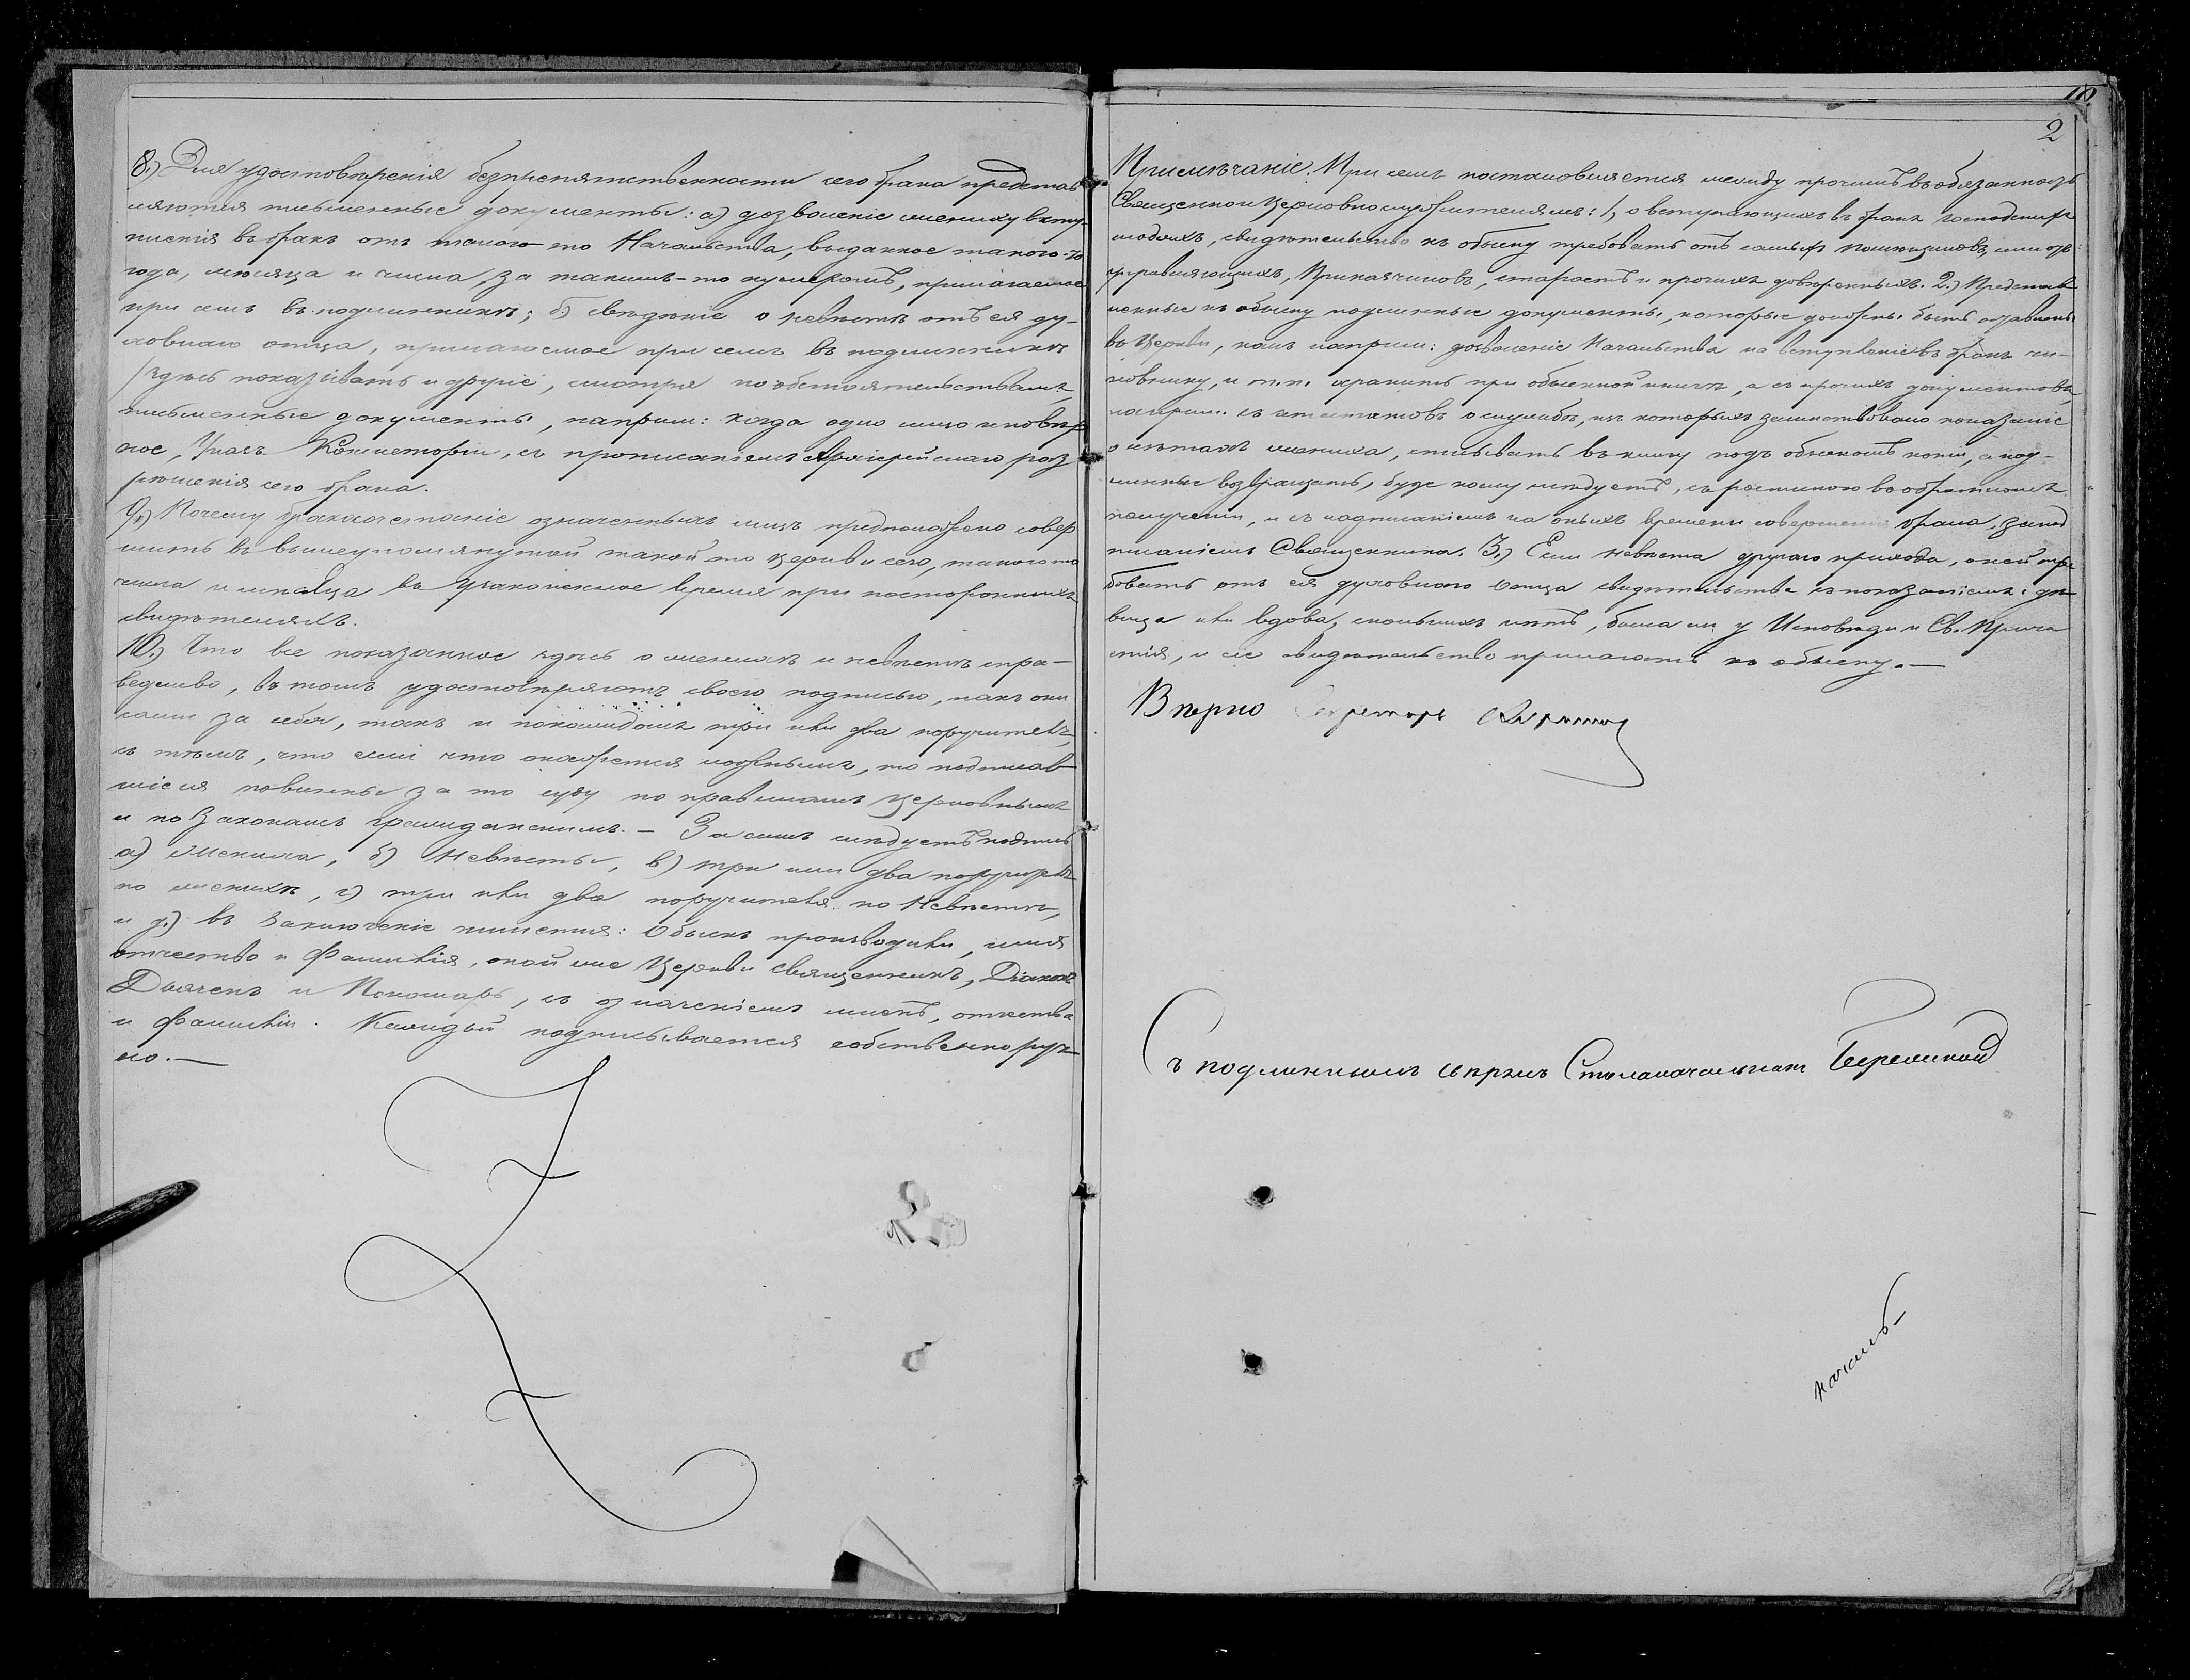 8.) Для удостовѣренія безпрепятственности сего брака представ
ляются письменные документы: а) дозволеніе жениху вступ
ленія въ бракъ отъ такого-то Начальства, выданное такого-то
года, мѣсяца и числа, за такимъ-то нумеромъ, прилагаемое
при семъ въ подлинникѣ; б) свѣдѣніе о невѣстѣ отъ ея ду-
ховнаго отца, прилагаемое при семъ въ подлинникѣ
/здѣсь показывать и другіе, смотря по обстоятельствамъ,
письменные документы, наприм: когда одно лицо иновѣр
ное, Указъ Консисторіи, съ прописаніемъ Архіерейскаго раз
рѣшенія сего брака.
9.) Почему бракосочетаніе означенныхъ лицъ предположено совер
шить въ вышеупомянутой такой то церкви сего, такого то
числа и мѣсяца въ узаконенное время при постороннихъ
свидѣтеляхъ.
10.) Что все показанное здѣсь о женихѣ и невѣстѣ спра-
ведливо, въ томъ удостовѣряютъ своею подписью, какъ они
сами за себя, такъ и по каждомъ три или два поручителя,
съ тѣмъ, что если что окажется ложнымъ, то подписав
шіеся повинны за то суду по правиламъ церковнымъ
и по законамъ гражданскимъ. — За симъ слѣдуетъ подпись
а) Жениха, б) Невѣсты, в) три или два поручителя
по женихѣ, г) три или два поручителя по Невѣстѣ,
и д.) въ заключеніе пишется: Обыскъ производили, имя
отчество и Фамилія, такой же Церкви священникъ, Діаконъ
Дьячекъ и Пономарь, съ означеніемъ именъ, отчества
и фамиліи. Каждый подписывается собственноруч-
но. —
10
2
Примѣчаніе. При семъ постановляется между прочимъ въ обязанность
Священноицерковнослужителямъ: 1, о вступающихъ въ бракъ господскихъ
людяхъ, свидѣтельство къ обыску требовать отъ самыхъ помѣщиковъ, или отъ
управляющихъ, Прикащиковъ, старостъ и прочихъ довѣренныхъ. 2.) Представ
ленные къ обыску подлинные документы, которые должны быть оставлены
въ Церкви, какъ наприм: дозволеніе Начальства на вступленіе въ бракъ чи-
новнику, и т. п. хранить при обыскной книгѣ, а съ прочихъ документовъ,
наприм. съ аттестатовъ о службѣ, изъ которыхъ заимствовано показаніе
о лѣтахъ жениха, списывать въ книгу подъ обыскомъ копіи, а под-
линные возвращать, буде кому слѣдуетъ, съ роспискою въ обратномъ
полученіи, и съ надписаніемъ на оныхъ времени совершенія брака, за под
писаніемъ Священника. 3.) Если невѣста другаго прихода, о ней тре
бовать отъ ея духовнаго отца свидѣтельства съ показаніемъ: дѣ
вица или вдова, сколькихъ лѣтъ, была ли у Исповѣди и Св. Прича
стія, и сіе свидѣтельство прилагать къ обыску. —
Вѣрно Секретарь
Съ подлиннымъ свѣрилъ Столоначальникъ